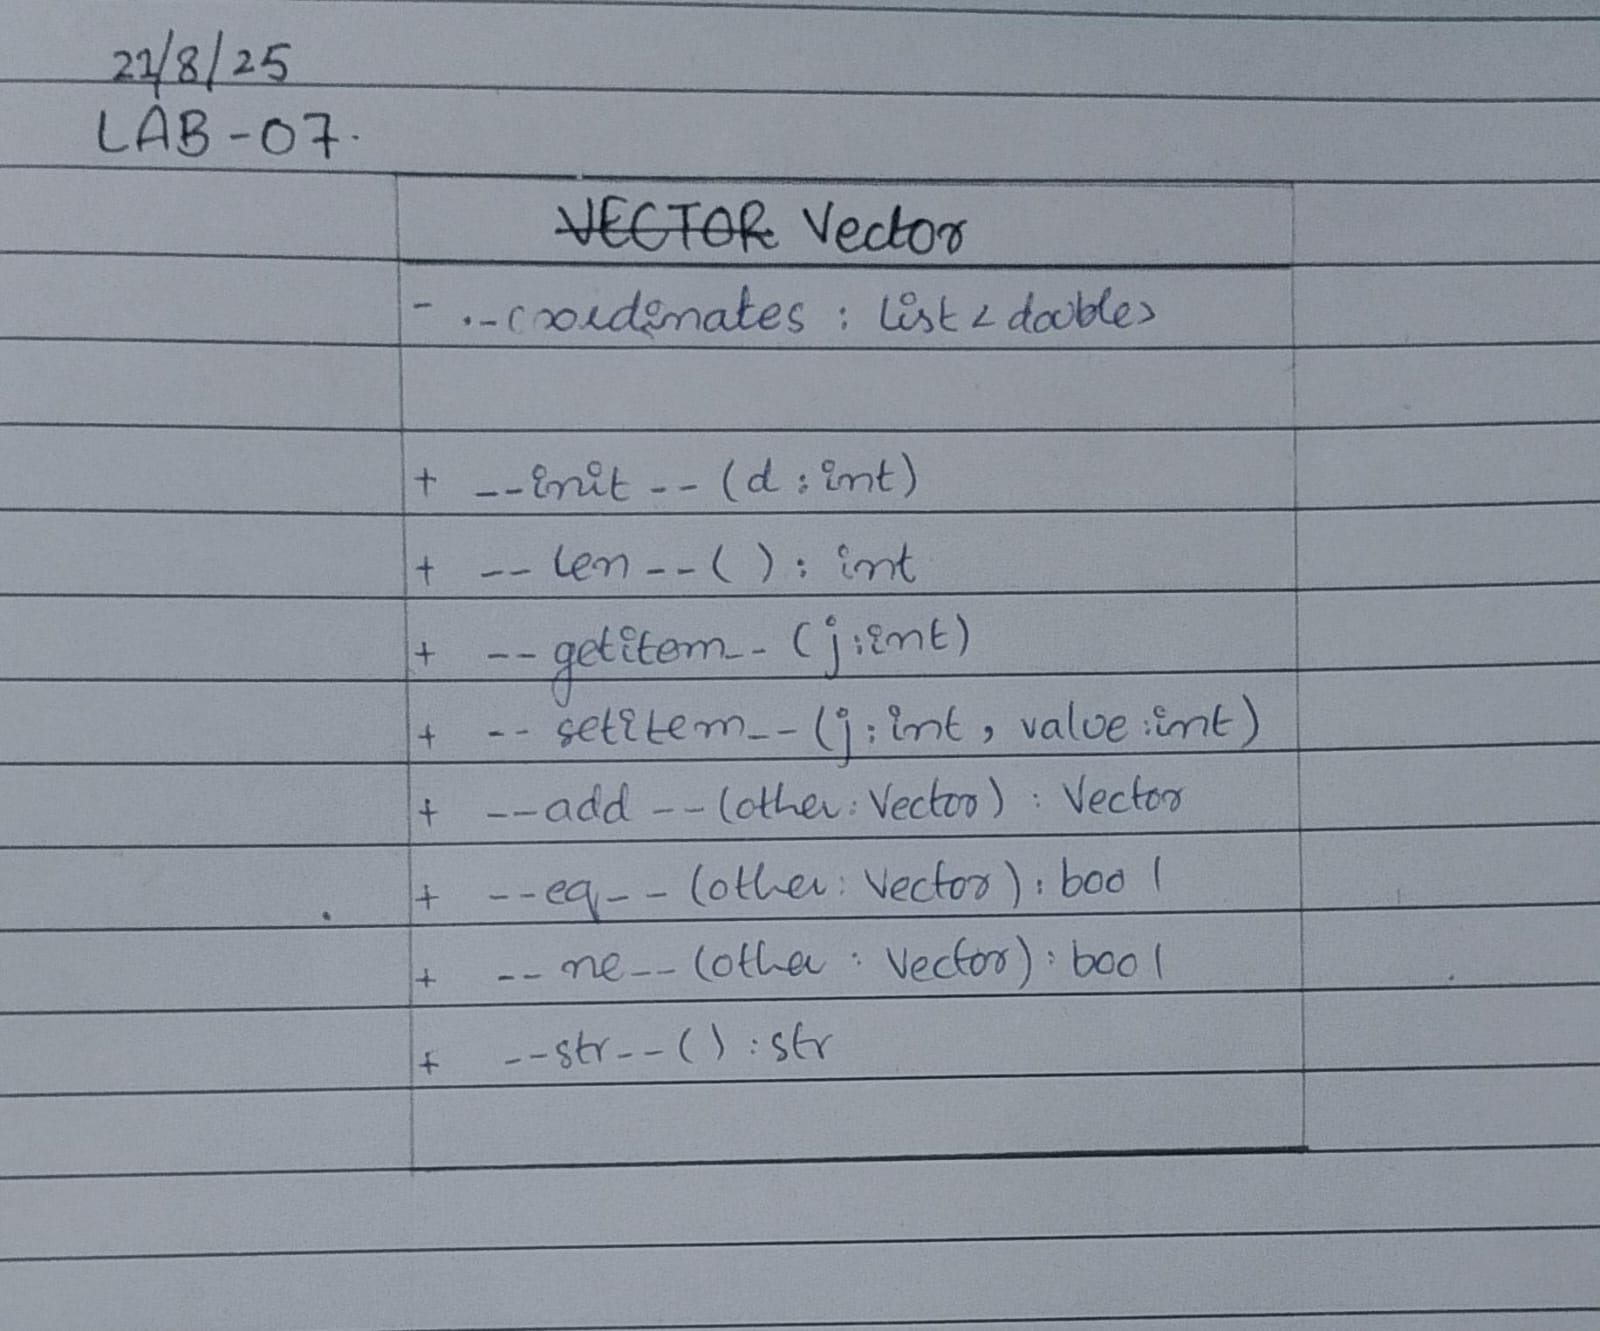 21/8/25
LAB-07.
VECTOR Vector
- --coordinates : list<double>
+ --init--(d:int)
+ --len--():int
+ --getitem--(j:int)
+ --setitem--(j:int, value:int)
+ --add--(other:Vector):Vector
+ --eq--(other:Vector):bool
+ --ne--(other:Vector):bool
+ --str--():str